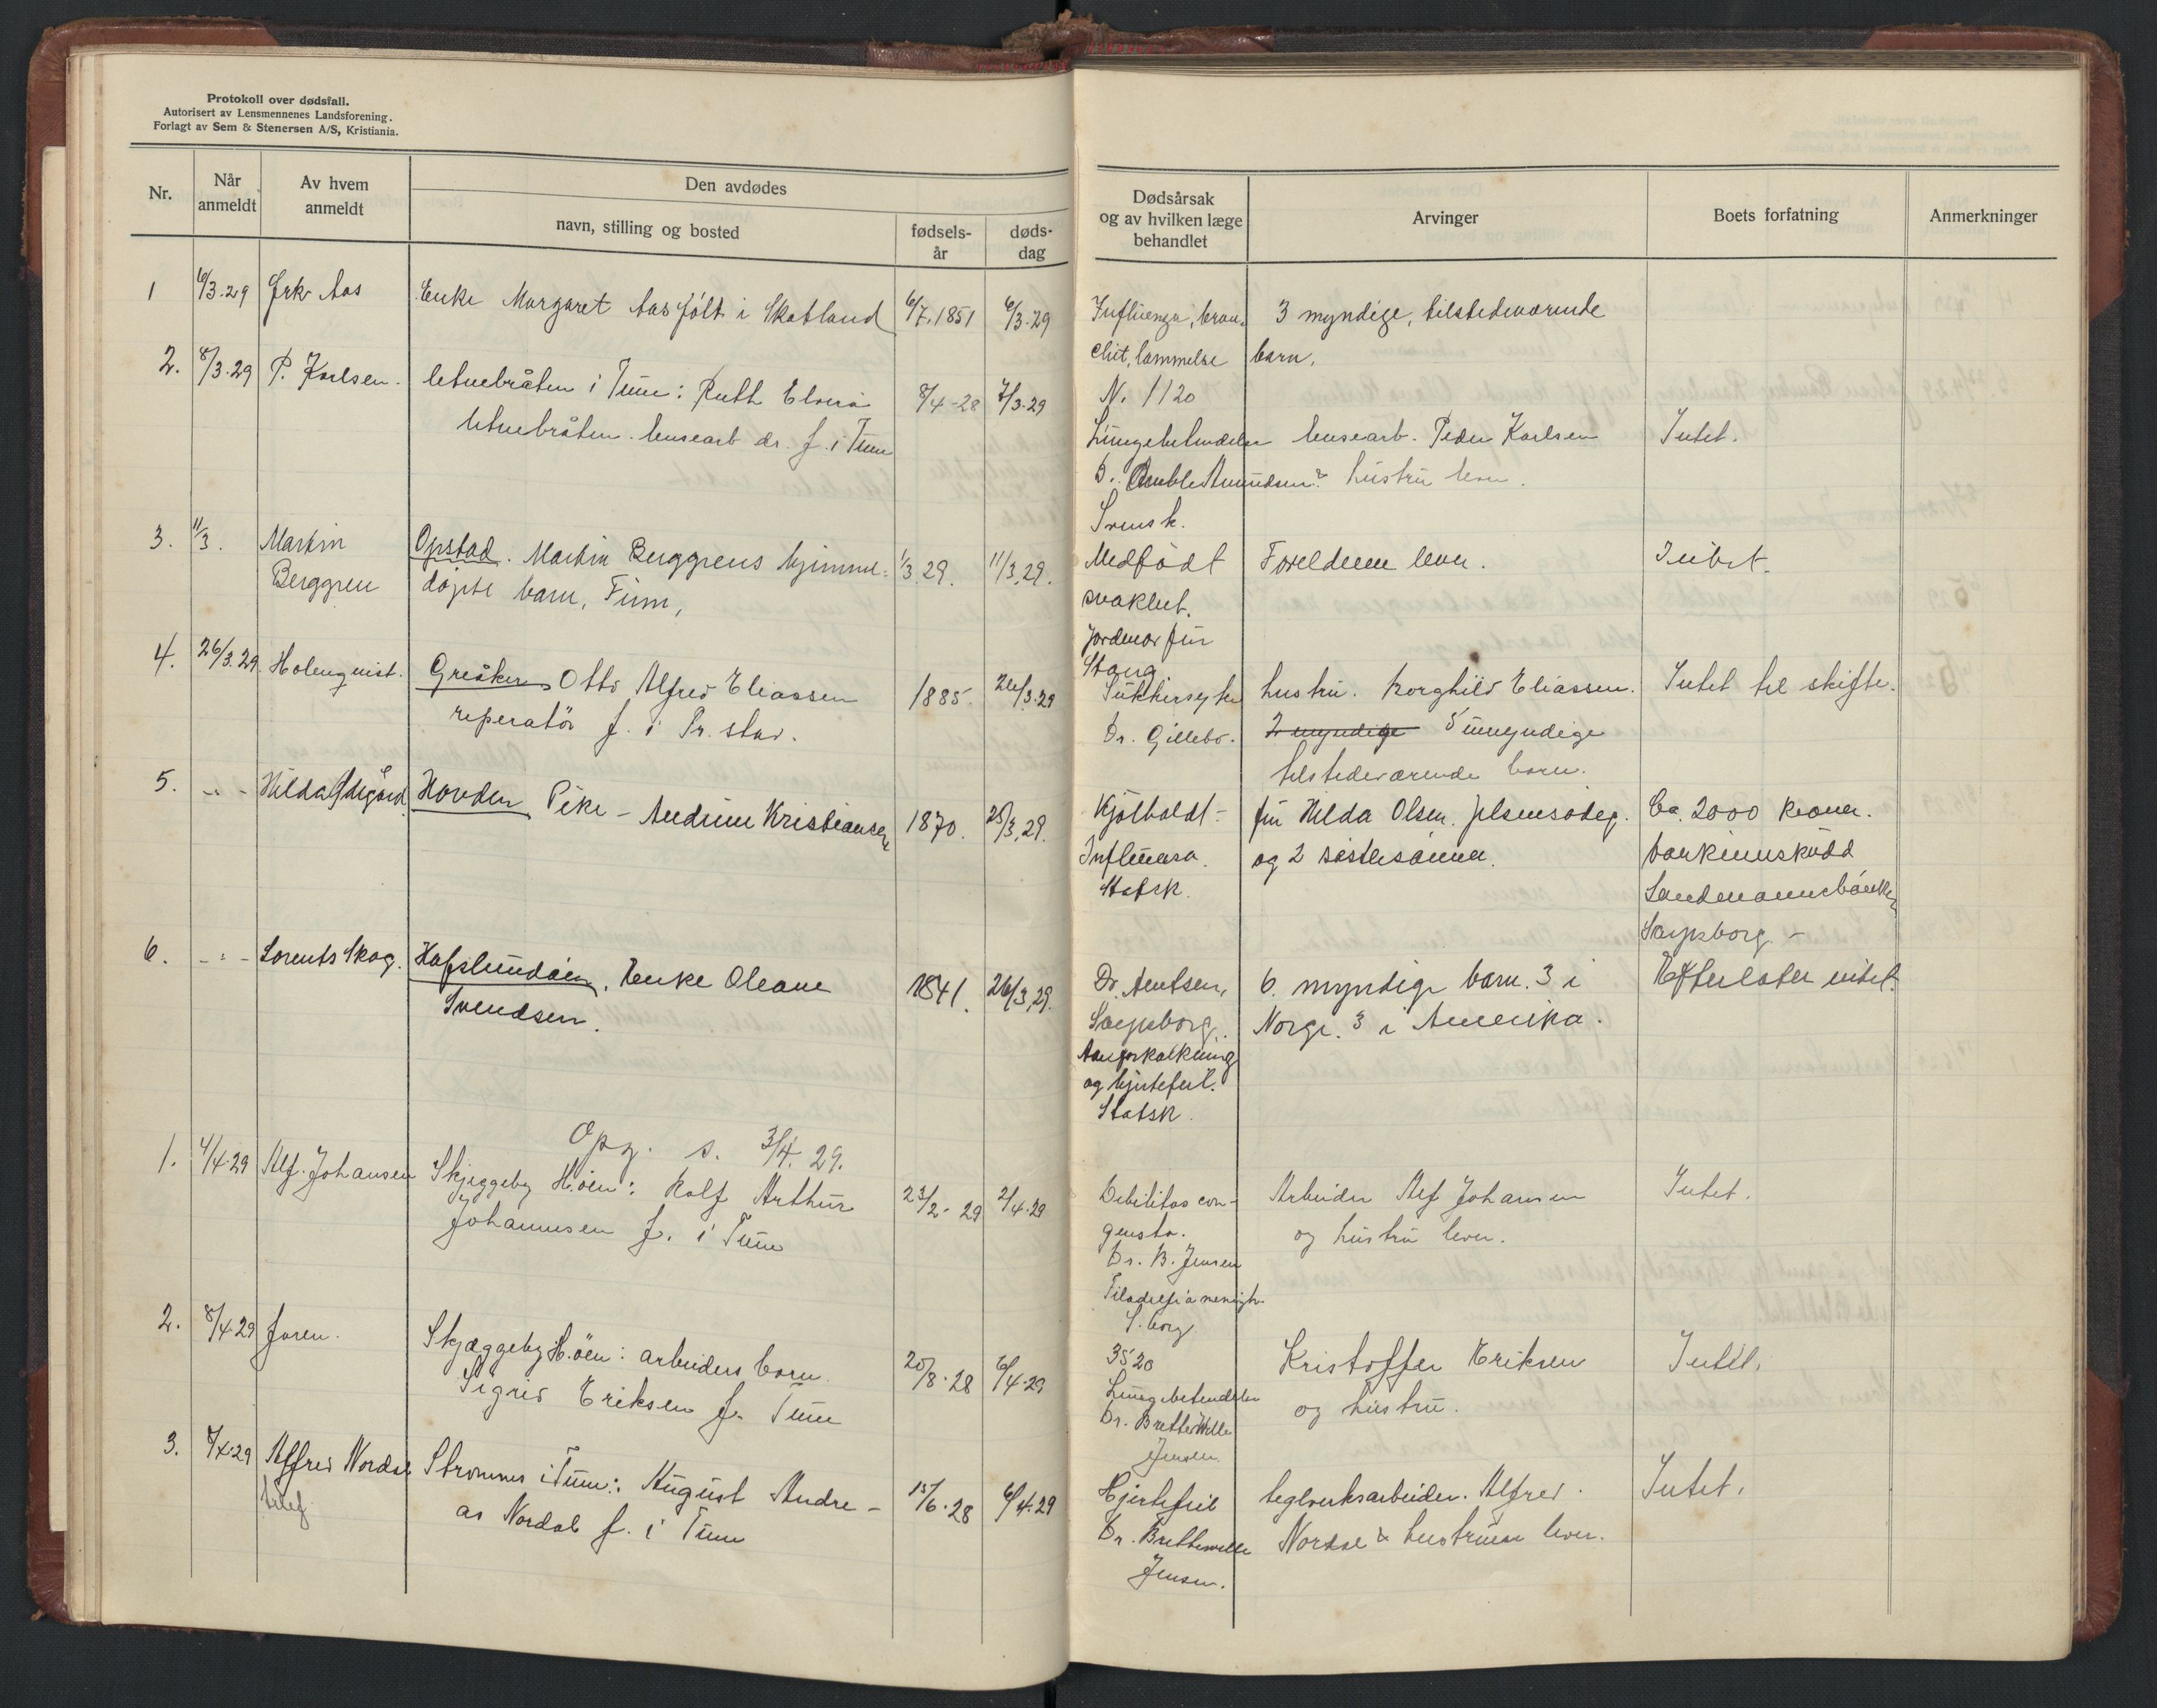 Protokoll over dødsfall.
Autorisert av Lensmennenes Landsforening.
Forlagt av Sem & Stenersen A/S, Kristiania.
Nr.
Når anmeldt
Av hvem anmeldt
Den avdødes
navn, stilling og bosted
fødsels-år
døds-dag
Dødsårsak og av hvilken læge behandlet
Arvinger
Boets forfatning
Anmerkninger
1 6/3.29 Frk. Aas Enke Margaret Aas født i Skotland 6/7.1851 6/3.29
2. 8/3.29 P. Karlsen. i Tune: Ruth Elvira 8/4-28 7/3.29
dr. f. i Tune
3. 11/3. Martin Opstad. Martin Berggrens hjemme- 1/3.29. 11/3.29.
Berggren døpte barn, Finn,
4. 26/3.29. Holmquist. Greåker Otto Alfred Eliassen 1885. 26/3.29
reperatør f. i Fr.stad.
5. -"- Hilda Ødegård Hovden Pike - Andrine Kristiansen 1870. 25/3.29.
6. -"- Lorents Skog. Hafslundøen, Enke Oleane 1841. 26/3.29.
Svendsen.
Opg. s. 3/4.29.
1. 4/4.29 Alf. Johansen Skjeggeby H.øen: Rolf Arthur 23/2-29 2/4.29
Johannsen f. i Tune
2. 8/4.29 Skjæggeby H.øen: arbeiders barn 20/8.28 6/4.29
Sigrid Eriksen f. Tune
3. 8/4.29 Alfred Nordal Strømnes i Tune: August Andre- 15/6.28 6/4.29
telef. as Nordal f. i Tune
Influenza, bron- 3 myndige, tilstedeværende
chit, lammelse barn.
N. 1120
Lungebetendelse Peder Karlsen Intet.
Amundsen & hustru lever.
Svensk.
Medfødt Foreldrene lever. Intet.
svakhet.
Jordmor fru
Stang
Sukkersyke hustru. Borghild Eliassen. Intet til skifte.
Dr. Gillebo. 2 myndige 5 umyndige
tilstedeværende barn.
fru Hilda Olsen. Ca. 2000 kroner.
Influensa. og 2 søstersønner. bankinnskudd
Statsk. Landmannsbanken
Sarpsborg -
Dr. Arntsen, 6. myndige barn. 3 i Efterlater intet.
Sarpsborg. Norge. 3 i Amerika.
Aareforkalkning
og hjertefeil.
Statsk.
Debilitas con- Arbeider Alf Johansen Intet.
genita. og hustru lever.
Dr. B. Jensen
Filadelfia menigh.
S.borg
3520 Kristoffer Eriksen Intet.
Lungebetendelse og hustru.
Dr. Bretteville
Jensen.
Hjertefeil teglverksarbeider. Alfred Intet.
Dr. Bretteville Nordal & hustruen lever.
Jensen.